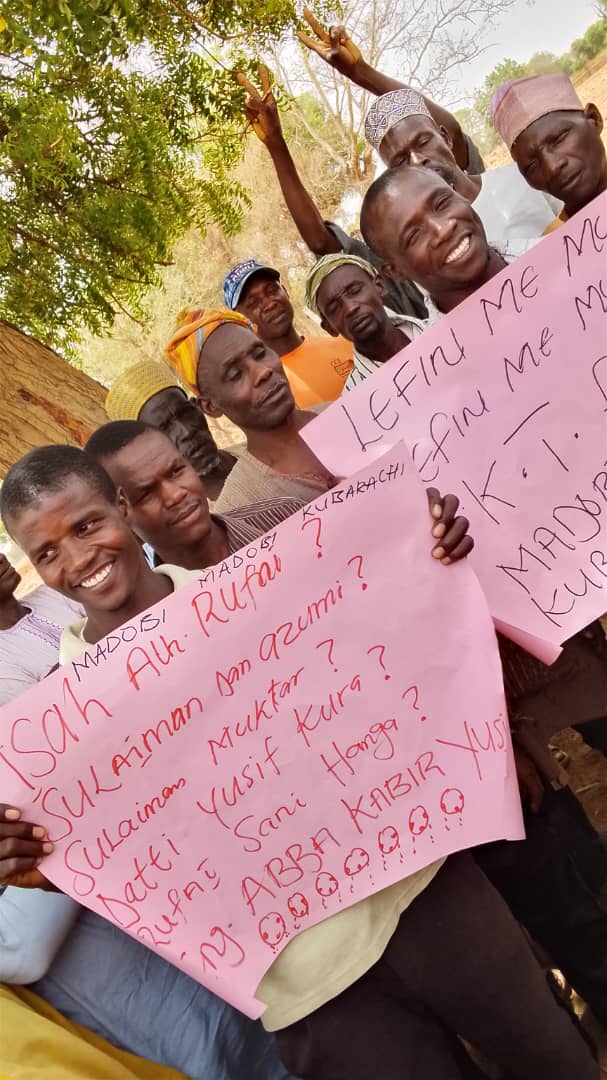 MADOBI MADOBI KUBARACHI
Isah Alh. Rufai ?
Sulaiman Dan azumi ?
Sulaiman Muktar ?
Datti Yusif Kura ?
Rufai Sani Hanga ?
ng. ABBA KABIR YUSI
LEFINI ME MO
EFINI ME MO
K.T.
MADOBI
KUB